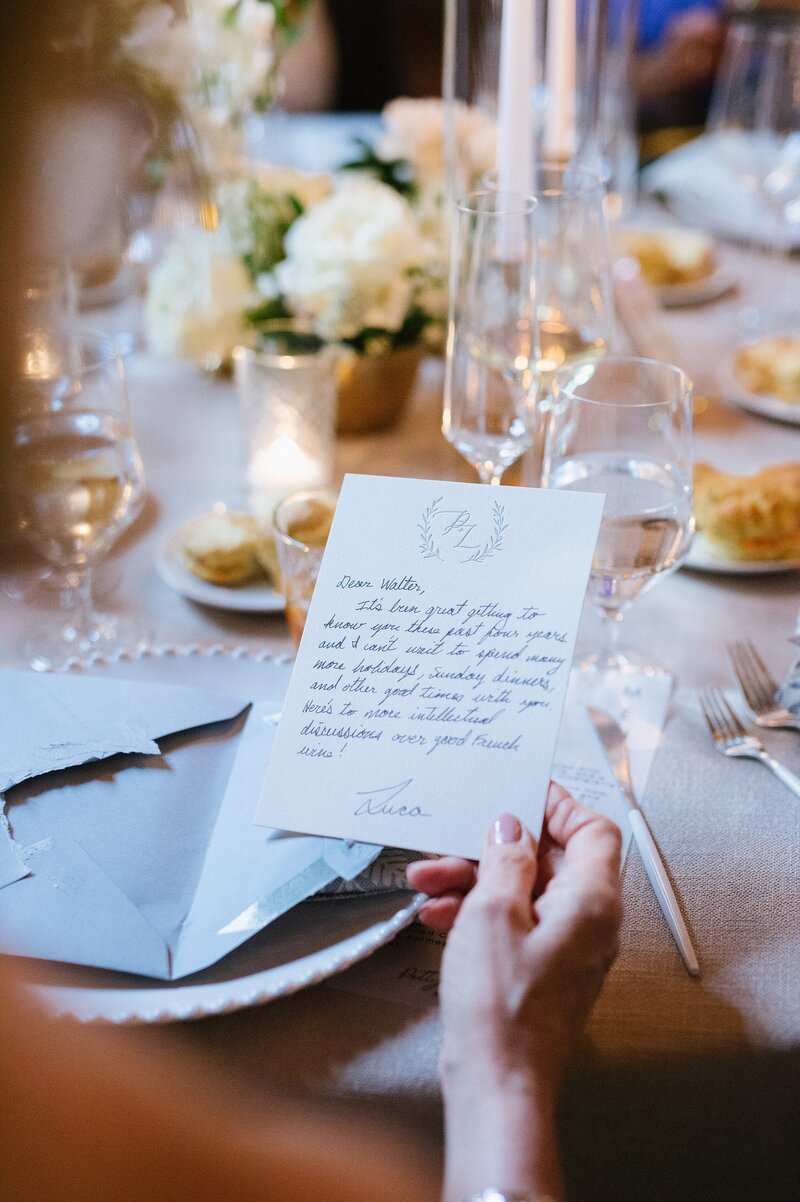 P+L
Dear Walter,
It's been great getting to
know you these past four years
and I can't wait to spend many
more holidays, Sunday dinners,
and other good times with you.
Here's to more intellectual
discussions over good French
wine!
Luca